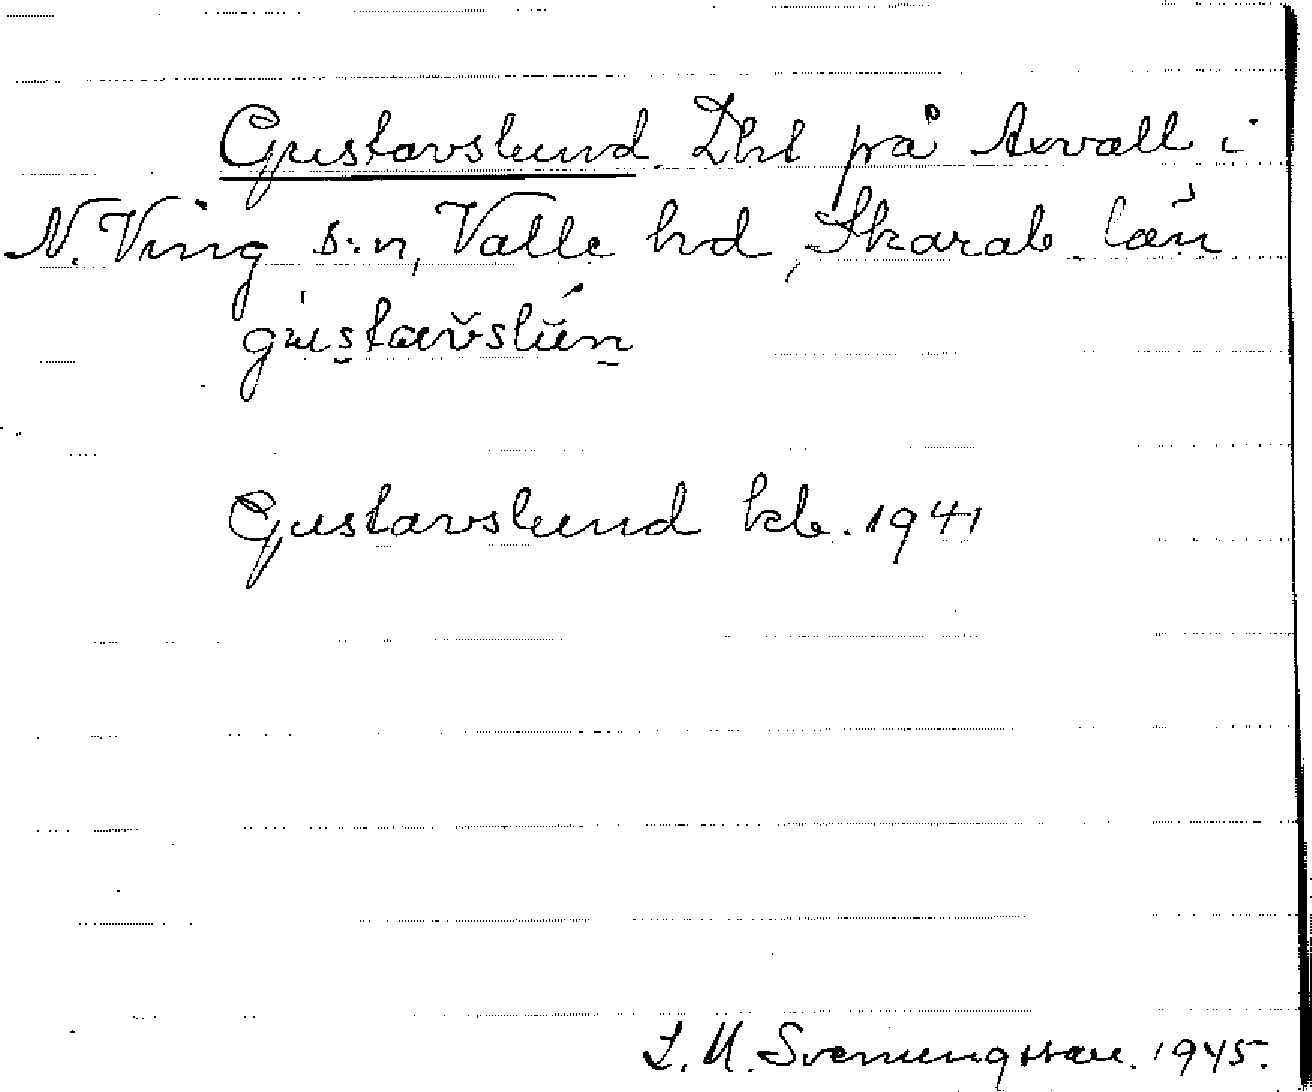 Gustavslund Dkl på Axvall i
N. Ving s:n, Valle hd, Skarab. län
gustavslun
Gustavslund kb. 1941
I. M. Svenungsson. 1945.